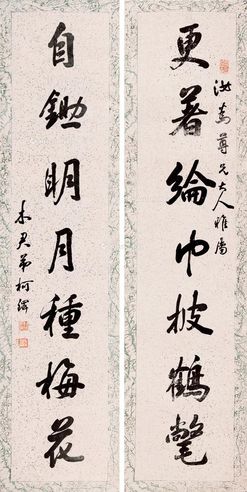 尊兄大人雅屬
更著綸巾披鶴氅
自鋤明月種梅花
君弟柯